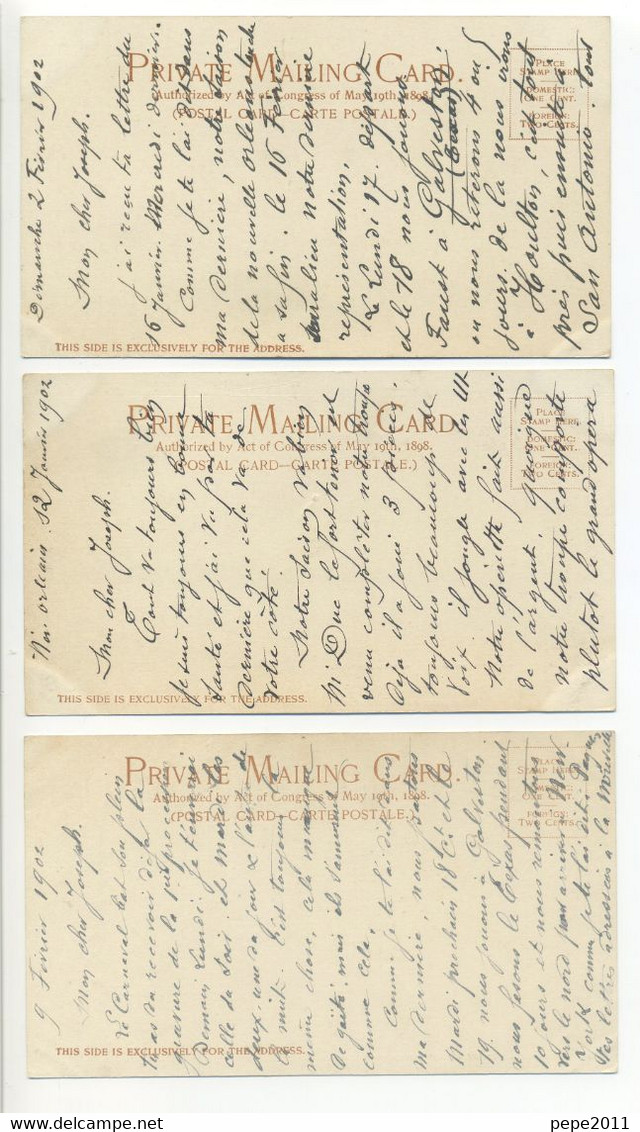 PRIVATE MAILING CARD.
Authorized by Act of Congress of May 19th, 1898.
(POSTAL CARD—CARTE POSTALE.)
PLACE
STAMP HERE
DOMESTIC:
ONE CENT.
FOREIGN:
TWO CENTS.
THIS SIDE IS EXCLUSIVELY FOR THE ADDRESS.
Dimanche 2 Février 1902
Mon cher Joseph.
J'ai reçu ta lettre du
16 Janvier. Mercredi dernier.
Comme je te l'ai dit dans
ma dernière, notre saison
de la nouvelle Orléans touche
a sa fin. le 16 Février
aura lieu notre dernière
représentation,
Le Lundi 17. départ
et le 18 nous jouons
Faust à Galveston
(Texas)
ou nous resterons 4 ou 5
jours. de la nous irons
à Houston, c'est tout
près puis ensuite à
San Antonio. tout
PRIVATE MAILING CARD.
Authorized by Act of Congress of May 19th, 1898.
(POSTAL CARD—CARTE POSTALE.)
PLACE
STAMP HERE
DOMESTIC:
ONE CENT.
FOREIGN:
TWO CENTS.
THIS SIDE IS EXCLUSIVELY FOR THE ADDRESS.
Nlle. orleans. 12 Janvier 1902
Mon cher Joseph.
Tout va toujours bien
je suis toujours en bonne
santé et j'ai vu par ta
dernière que cela va de
votre côté.
Notre saison va bien
Mr Duc le fort tenor est
venu compléter notre troupe
Déjà il a joué 3 fois,
toujours beaucoup de
voix. il jongle avec les Ut
Notre opérette fait aussi
de l'argent, quoique
notre troupe comporte
plutôt le grand opera
PRIVATE MAILING CARD.
Authorized by Act of Congress of May 19th, 1898.
(POSTAL CARD—CARTE POSTALE.)
PLACE
STAMP HERE
DOMESTIC:
ONE CENT.
FOREIGN:
TWO CENTS.
THIS SIDE IS EXCLUSIVELY FOR THE ADDRESS.
9 Février 1902
Mon cher Joseph.
Le Carnaval bat son plein
tu as du recevoir déjà la
gravure de la 1ère procession
Demain Lundi. Je t'enverrai
celle du soir. et Mardi les
deux. une du jour & l'autre de
la nuit. C'est toujours la
même chose, cela manque
de gaité. mais ils s'amusent
comme cela,
Comme je te l'ai dit dans
ma dernière, nous partons
Mardi prochain 18 ct et le
19. nous jouons à Galveston
nous faisons le Texas pendant
10 jours et nous remontons
vers le nord pour arriver à New-
York comme je te l'ai dit. Tu peux
tes lettres adressées à la